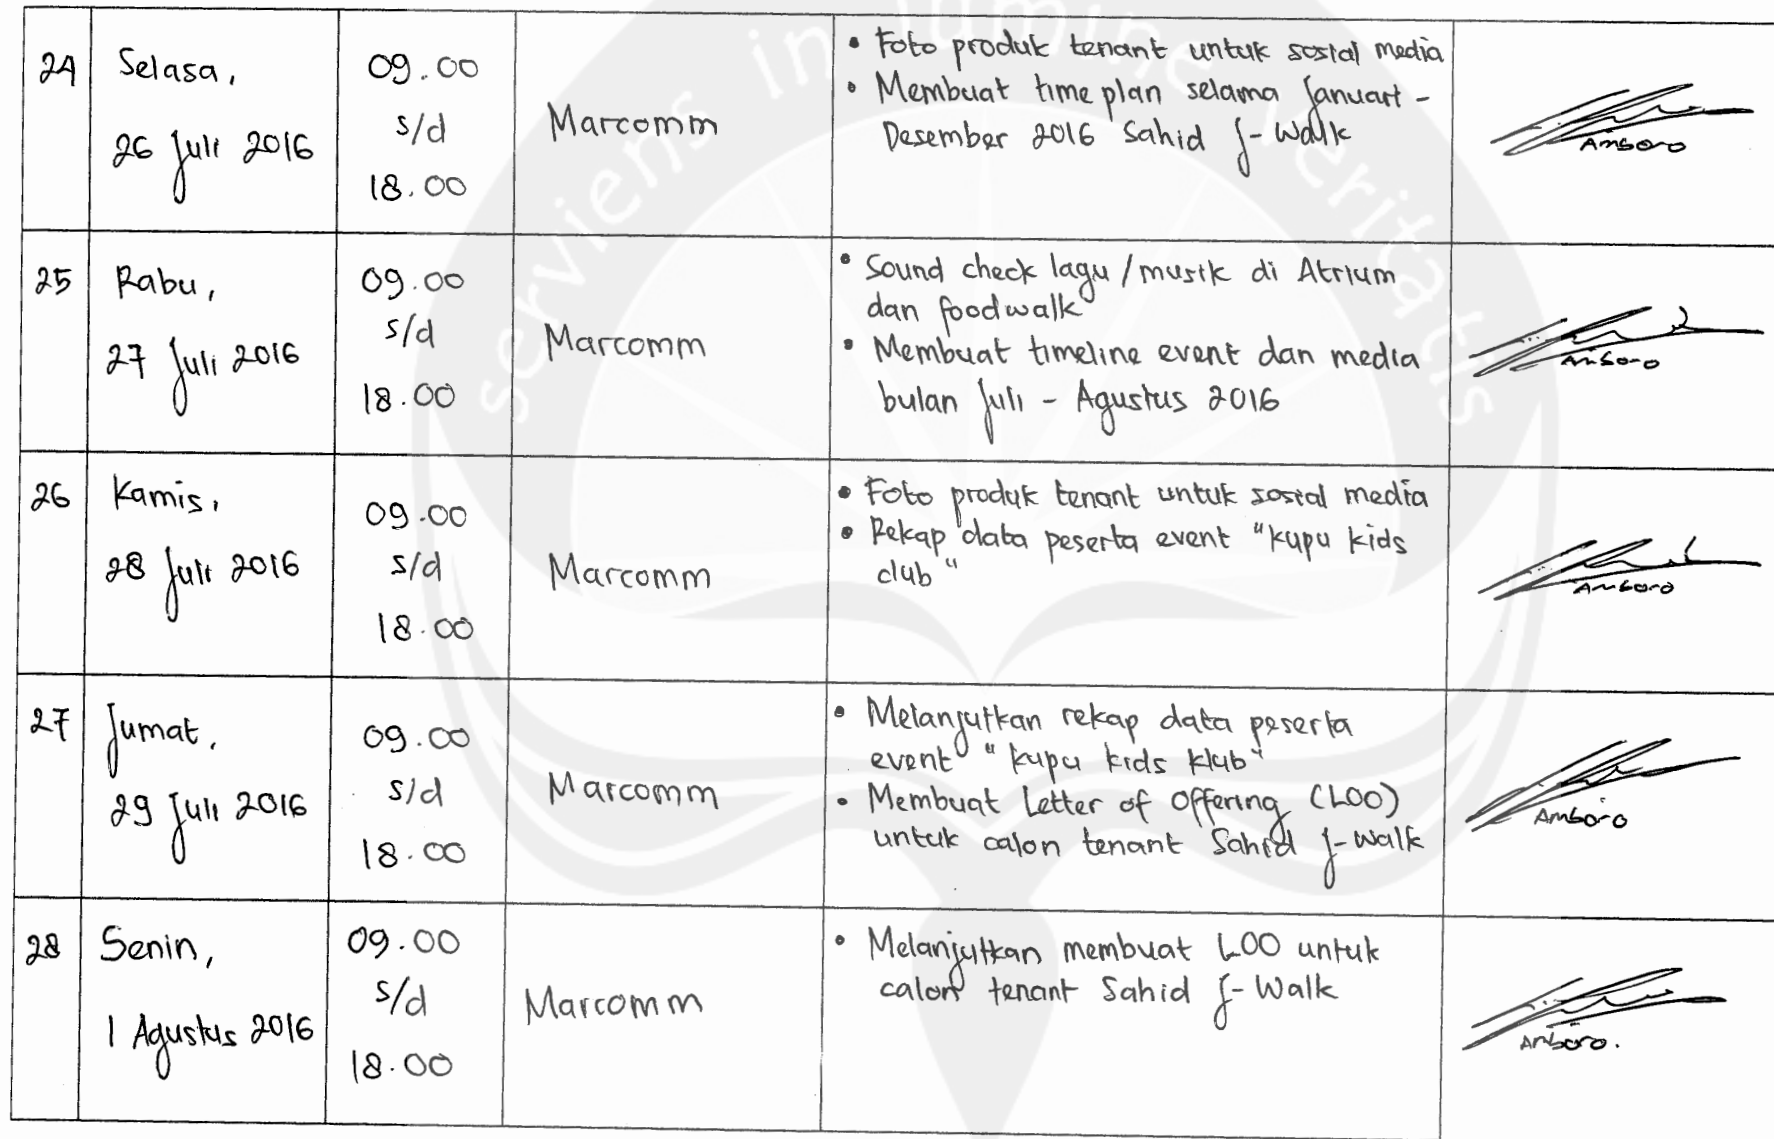 serviens in lumine veritatis
24
Selasa,
26 Juli 2016
09.00
s/d
18.00
Marcomm
• Foto produk tenant untuk sosial media
• Membuat time plan selama Januari -
Desember 2016 Sahid J-Walk
Amboro
25
Rabu,
27 Juli 2016
09.00
s/d
18.00
Marcomm
• Sound check lagu / musik di Atrium
dan foodwalk
• Membuat timeline event dan media
bulan Juli - Agustus 2016
Amboro
26
Kamis,
28 Juli 2016
09.00
s/d
18.00
Marcomm
• Foto produk tenant untuk sosial media
• Rekap data peserta event "kupu kids
club"
Amboro
27
Jumat,
29 Juli 2016
09.00
s/d
18.00
Marcomm
• Melanjutkan rekap data peserta
event "kupu kids klub"
• Membuat Letter of Offering (LOO)
untuk calon tenant Sahid J-Walk
Amboro
28
Senin,
1 Agustus 2016
09.00
s/d
18.00
Marcomm
• Melanjutkan membuat LOO untuk
calon tenant Sahid J-Walk
Amboro.